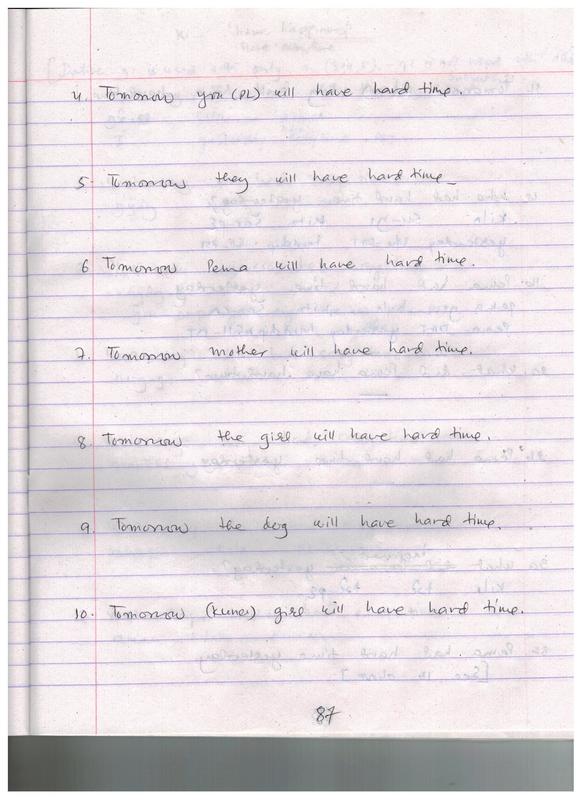 4. Tomorrow you (PL) will have hard time.
5. Tomorrow they will have hard time
6 Tomorrow Pema will have hard time.
7. Tomorrow mother will have hard time.
8. Tomorrow the girl will have hard time.
9. Tomorrow the dog will have hard time.
10. Tomorrow (Kunei) girl will have hard time.
87